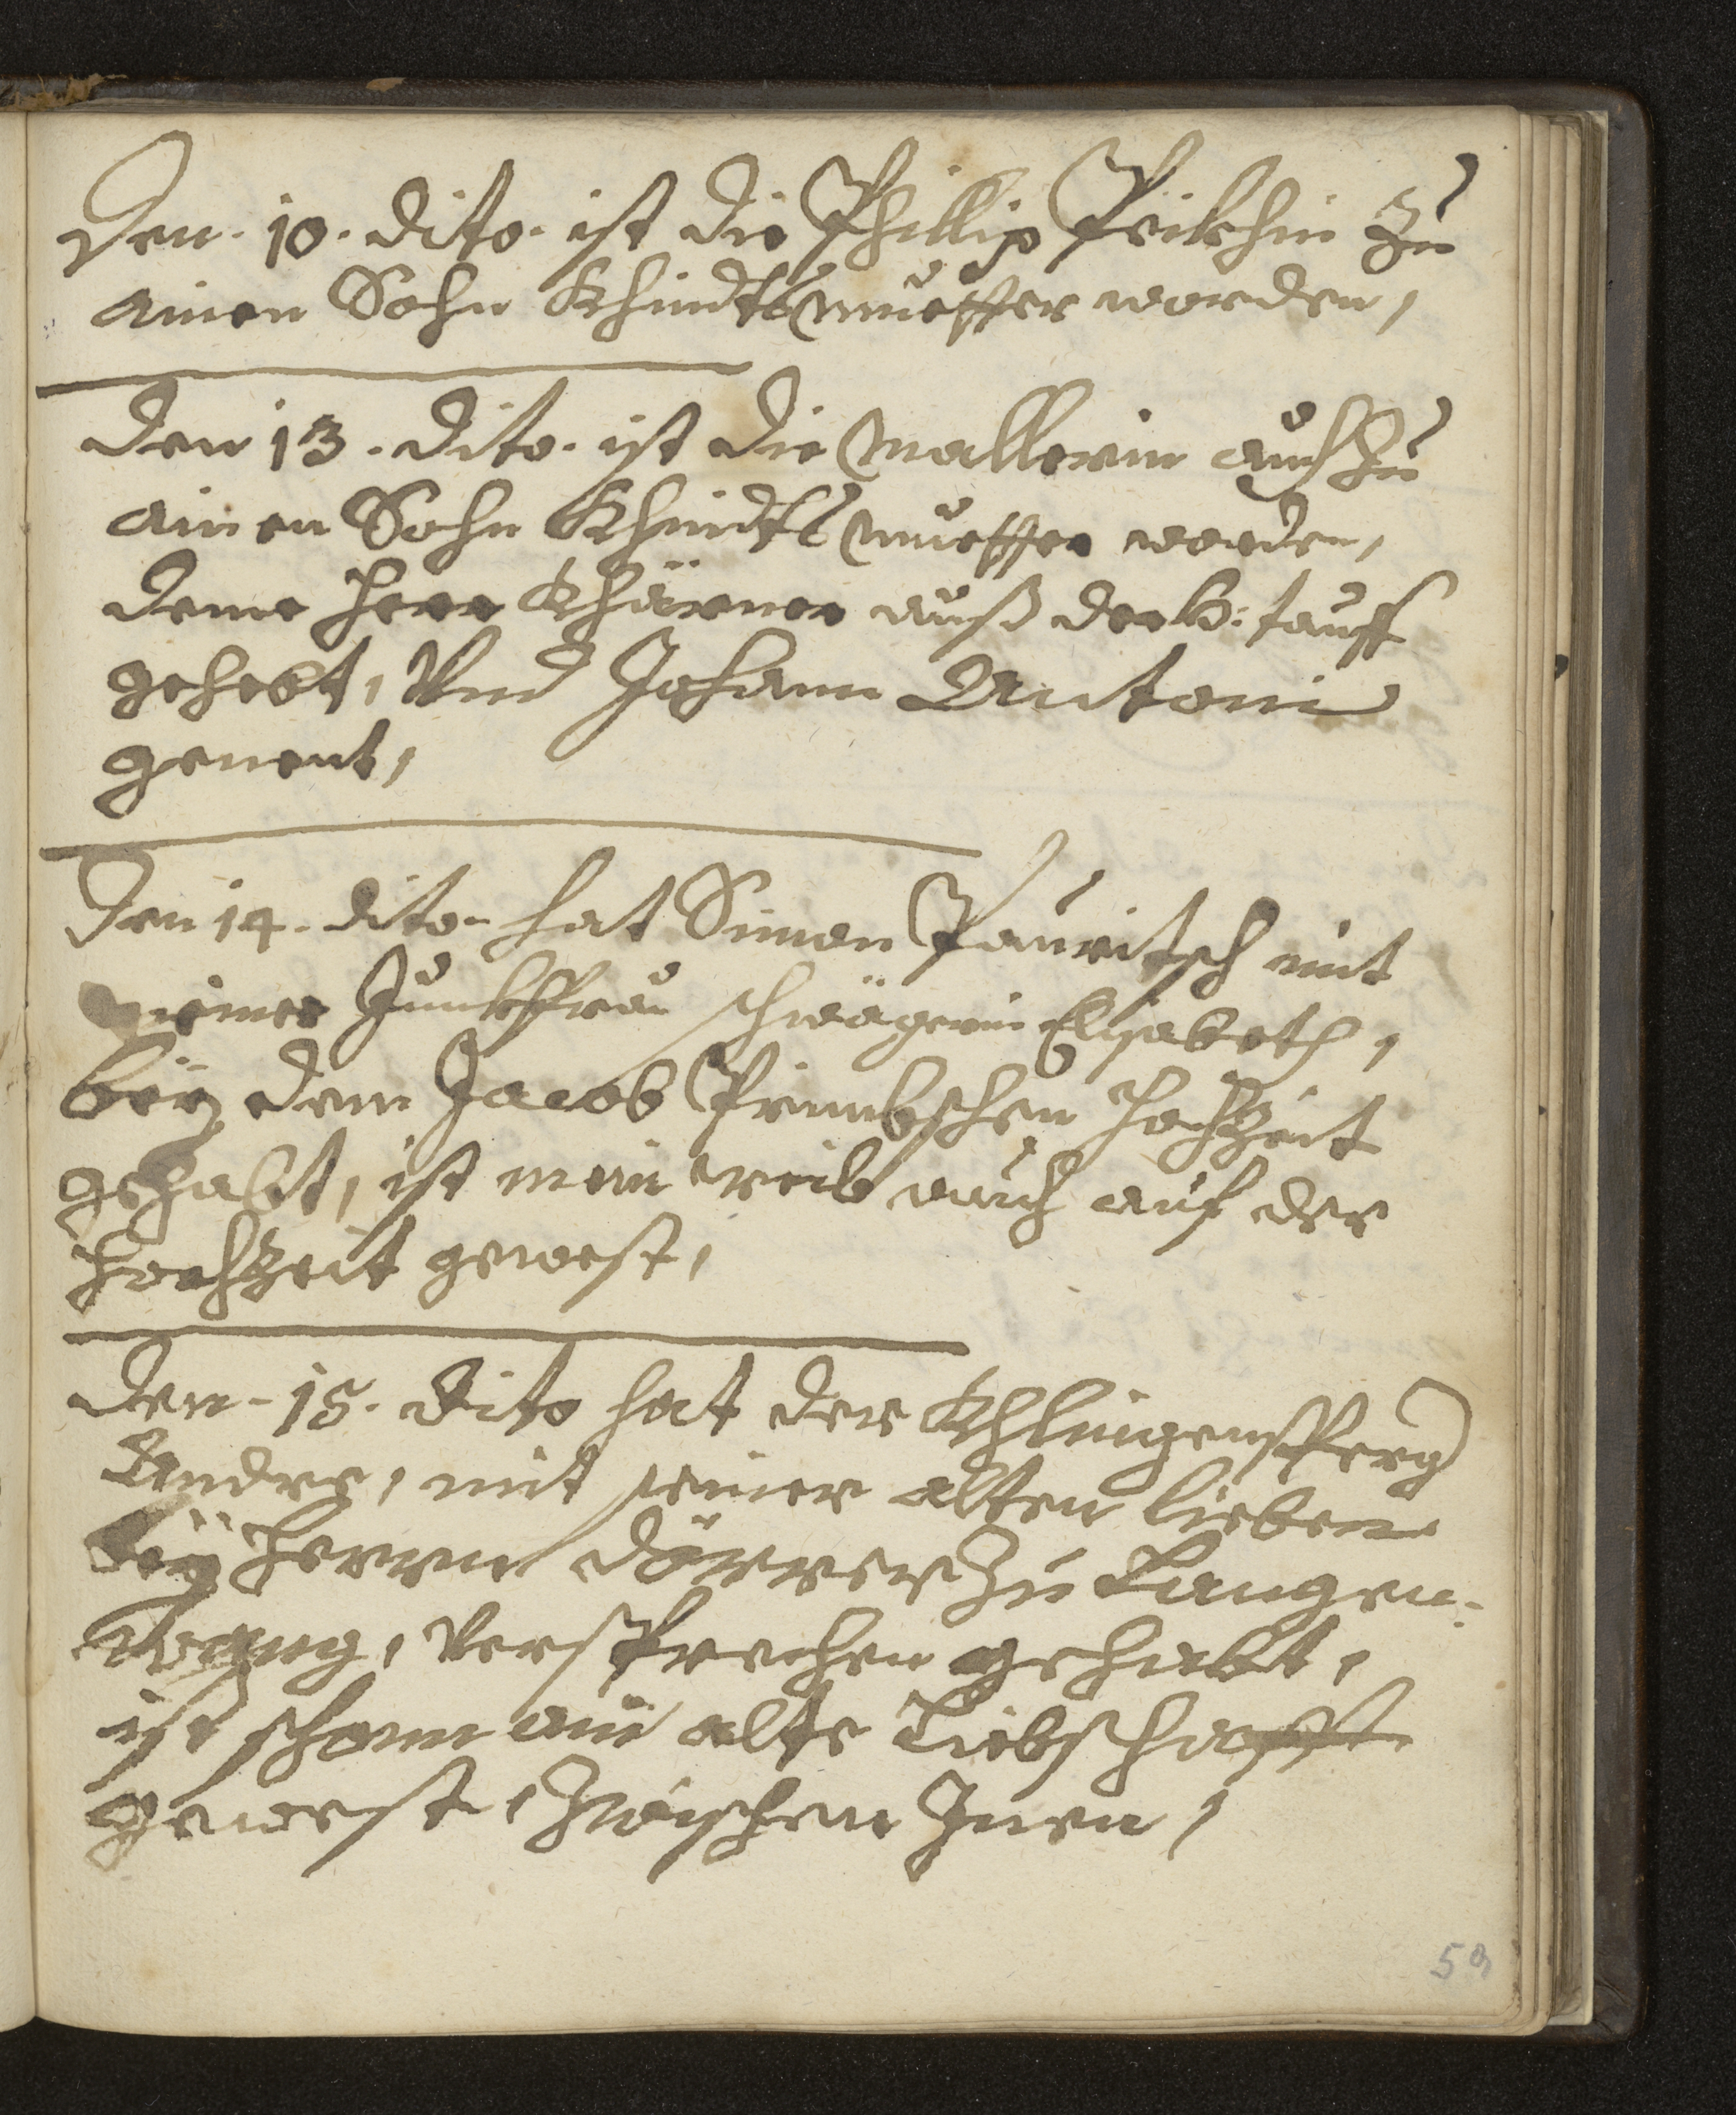 Den. 10. dito. ist die Phillip Peikhin zu
ainen Sohn Khindtsmuetter worden,
Den 13. dito. ist die Mallerin auch zu
ainen Sohn Khindtsmuetter worden,
deme Herr Khärner auß der h: tauff
gehebt, Vnd Johann Antoni
genent,
Den 14. dito hat Simon Pauritsch mit
meiner Junkffrau schwägerin Elisabeth,
beÿ dem Jacob Primbschen Hochzeit
gehabt, ist mein weib auch auf der
Hochzeit gewest,
Den. 15. dito hat der Khlingensperg
Andre, mit seiner alten lieben
beÿ Herrn Dörrer zu Langen-
wang, Versprechen gehabt,
ist schonn ain alte Liebschafft
gewest, zwischen Inen,
59